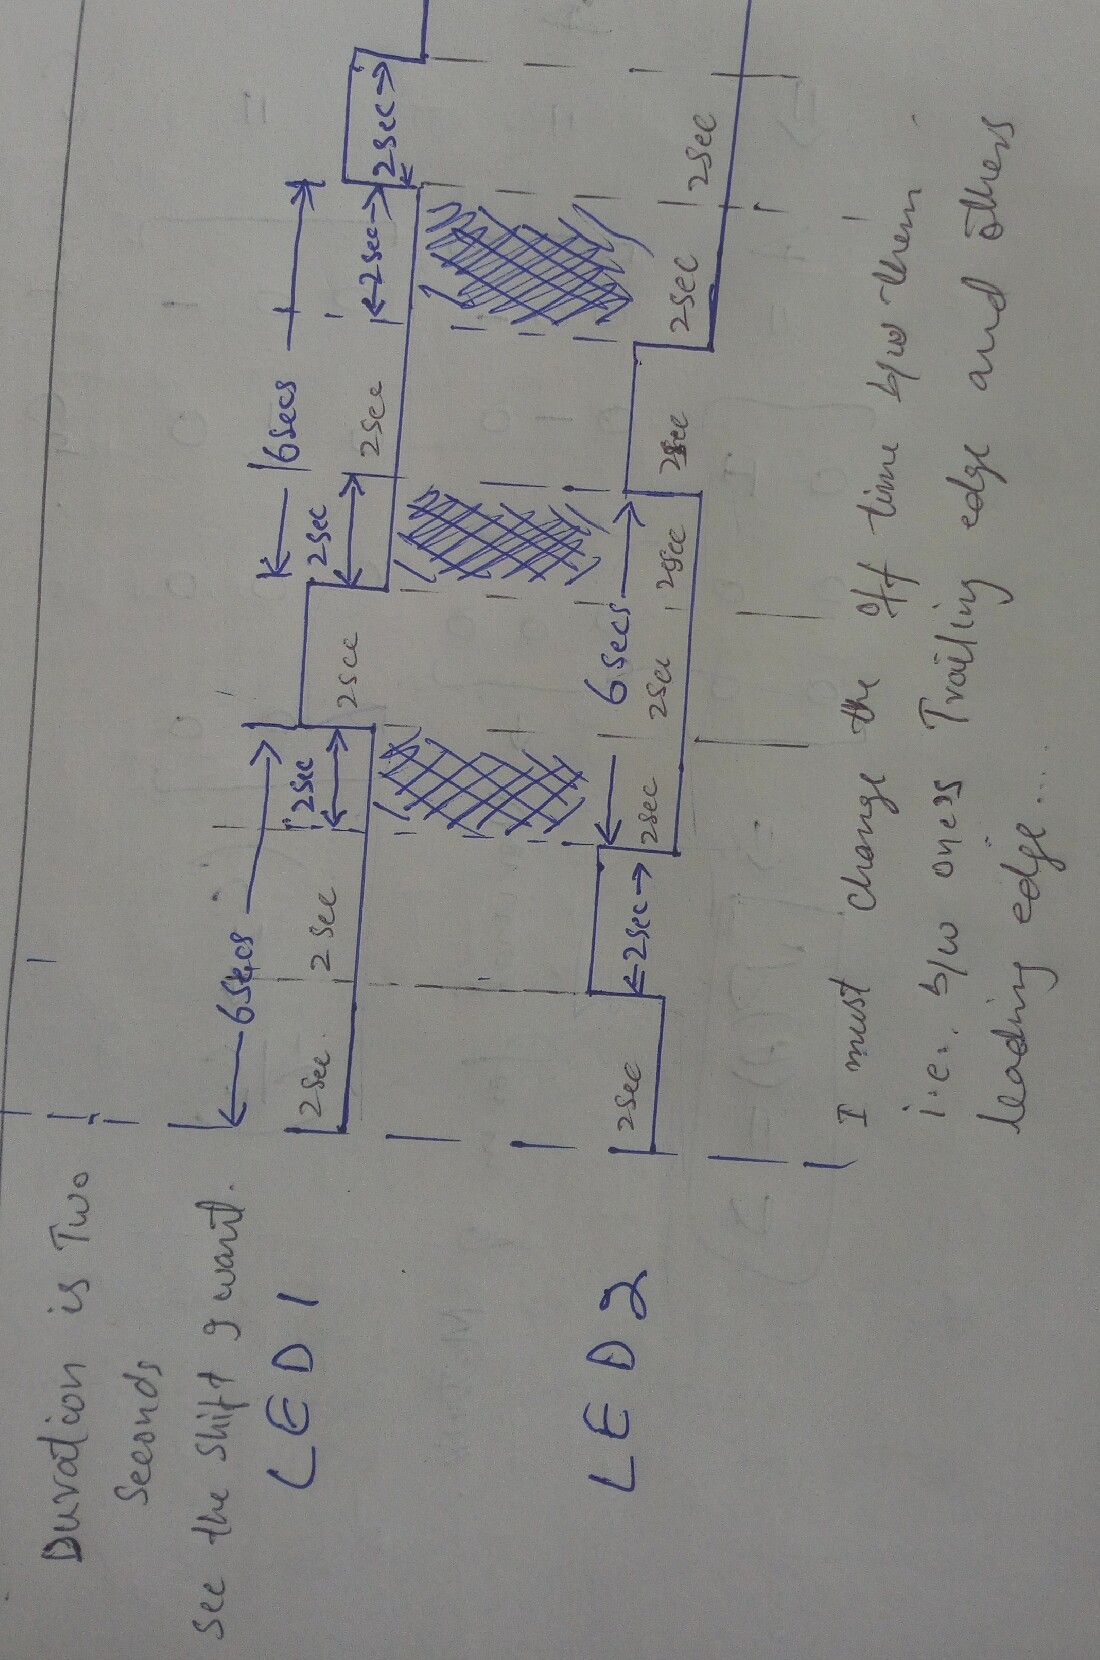 Duration is Two
Seconds
See the shift I want.
LED 1
6secs
6secs
2sec
2sec
2sec
2sec
2sec
2sec
2sec
2sec
LED 2
2sec
2sec
6secs
2sec
2sec
2sec
2sec
2sec
2sec
I must change the off time b/w them.
i.e. b/w one's Trailing edge and others
leading edge...